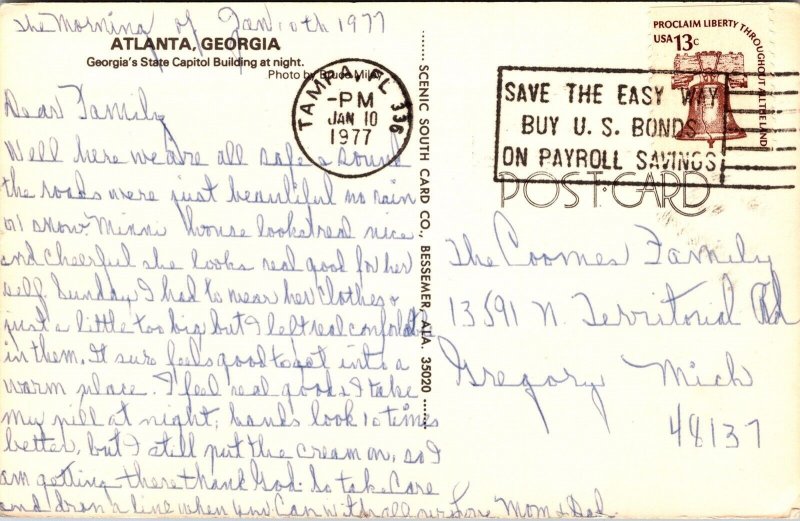 The Morning of Jan 10th 1977
ATLANTA, GEORGIA
Georgia's State Capitol Building at night.
Photo by Bruce
Dear Family
Well here we are all safe & sound
the roads were just beautiful no rain
or snow. Minni house looks real nice
and cheerful she looks real good for her
self. Sunday I had to wear her clothes &
just a little too big but I felt real
in them. It sure feels good to get into a
warm place. I feel real good & I take
my pill at night, hands look 10 times
better, but I still put the cream on, so I
am getting there thank God. So take care
and drop a line when you can with all our Love Mom & Dad.
SCENIC SOUTH CARD CO., BESSEMER, ALA. 35020
TAMPA, FL 336
-PM
JAN 10
1977
PROCLAIM LIBERTY THROUGHOUT ALL THE LAND
USA 13c
SAVE THE EASY WAY
BUY U.S. BONDS
ON PAYROLL SAVINGS
POST CARD
The Coomes Family
13591 N. Territorial Rd
Gregory Mich
48137